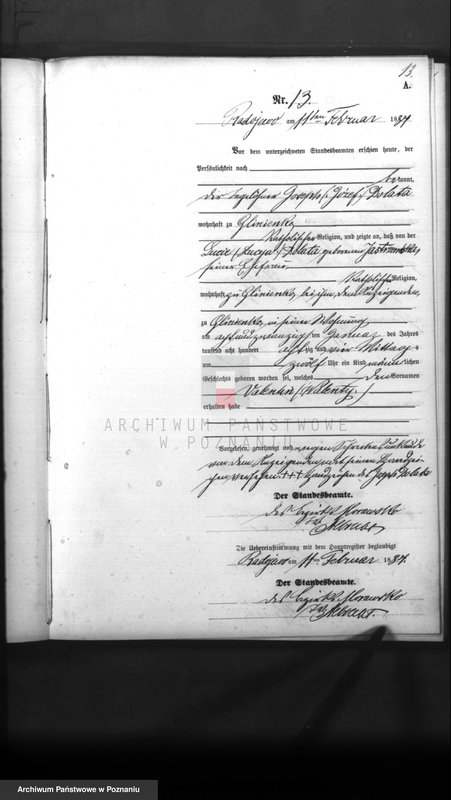 13.
A.
Nr. 13.
Radojewo am 11ten Februar 1884
Vor dem unterzeichneten Standesbeamten erschien heute, der
Persönlichkeit nach
bekannt,
der Tagelöhner Joseph (Józef) Dolata
wohnhaft zu Glinienko
katholischer Religion, und zeigte an, daß von der
Lucie (Lucya) Dolata geborenen
seiner Ehefrau,
katholischer Religion,
wohnhaft zu Glinienko bei ihm, dem Anzeigenden,
zu Glinienko in seiner Wohnung
am achtundzwanzigsten Januar des Jahres
tausend acht hundert achtzig und vier Mittags
um zwölf Uhr ein Kind männlichen
Geschlechts geboren worden sei, welches den Vornamen
Valentin (Walenty)
erhalten habe
ARCHIWUM PAŃSTWOWE
W POZNANIU
Vorgelesen, genehmigt und wegen Schreibensunkunde
von dem Anzeigenden mit seinem Handzei-
chen versehen. +++ Handzeichen des Joseph Dolata
Der Standesbeamte.
des Bezirks Morawsko
Die Uebereinstimmung mit dem Hauptregister beglaubigt
Radojewo am 11ten Februar 1884.
Der Standesbeamte.
des Bezirks Morawsko
Archiwum Państwowe w Poznaniu